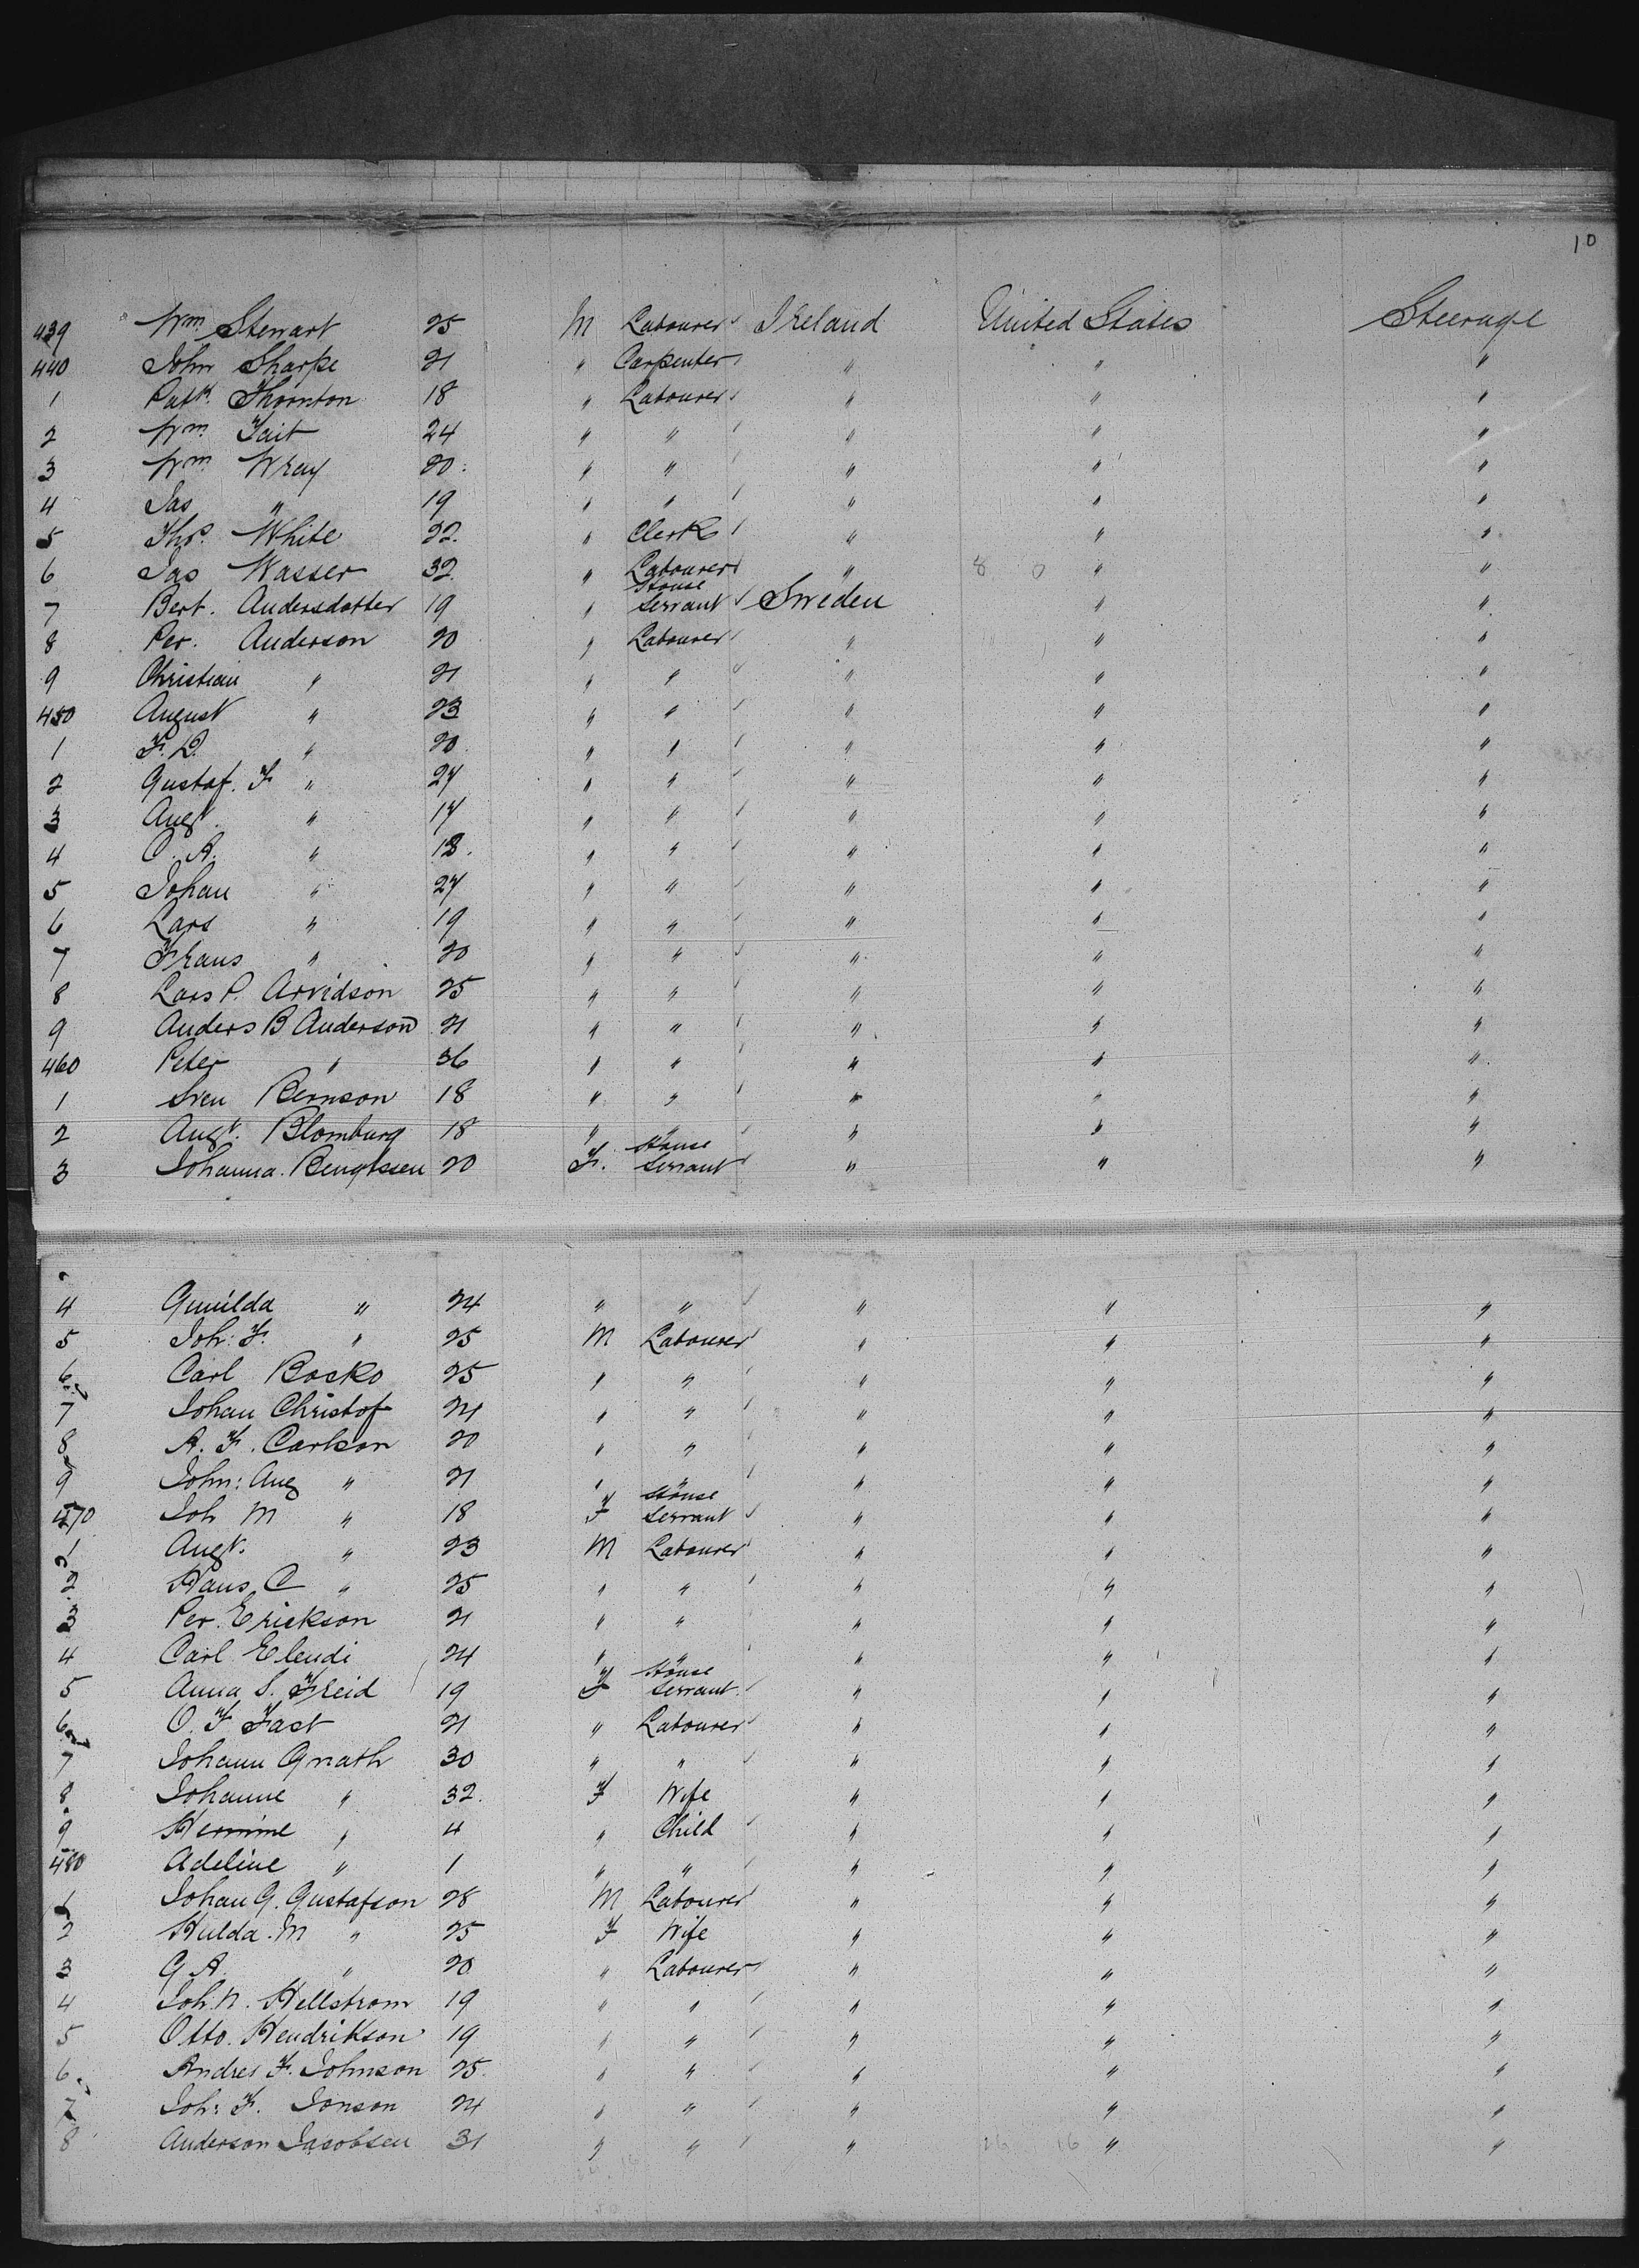 10
439 Wm Stewart 25 M Labourer Ireland United States Steerage
440 John Sharpe 21 " Carpenter " " "
1 Patk. Thornton 18 " Labourer " " "
2 Wm Tait 24 " " " " "
3 Wm Wray 20 " " " " "
4 Jas " 19 " " " " "
5 Thos. White 22 " Clerk " " "
6 Jas Wasser 32 " Labourer " 8 0 " "
7 Bert. Andersdotter 19 " House Servant Sweden " "
8 Per. Anderson 20 " Labourer " " "
9 Christian " 21 " " " " "
450 August " 23 " " " " "
1 F. D. " 20 " " " " "
2 Gustaf. F " 27 " " " " "
3 Augt. " 17 " " " " "
4 O. A. " 18 " " " " "
5 Johan " 27 " " " " "
6 Lars " 19 " " " " "
7 Frans " 20 " " " " "
8 Lars P. Arvidson 25 " " " " "
9 Anders B Anderson 21 " " " " "
460 Peter " 36 " " " " "
1 Sven Bernson 18 " " " " "
2 Augt. Blomburg 18 " " " " "
3 Johanna. Bengtssen 20 F. House Servant " " "
4 Gunilda " 24 " " " " "
5 Joh: F. " 25 M Labourer " " "
6 Carl Bocko 25 " " " " "
7 Johan Christof 24 " " " " "
8 A. F. Carlson 20 " " " " "
9 John: Aug " 21 " " " " "
470 Joh M " 18 F House Servant " " "
1 Augt. " 23 M Labourer " " "
2 Hans C " 25 " " " " "
3 Per. Erickson 21 " " " " "
4 Carl Elendi 24 " " " " "
5 Anna S. Freid 19 F House Servant " " "
6 O. F Fast 21 " Labourer " " "
7 Johann Gnath 30 " " " " "
8 Johanne " 32. F Wife " " "
9 Hermine " 4 " Child " " "
480 Adeline " 1 " " " " "
1 Johan G. Gustafson 28 M Labourer " " "
2 Hulda. M " 25 F Wife " " "
3 G A. " 20 " Labourer " " "
4 Joh. N. Hellstrom 19 " " " " "
5 Otto. Hendrikson 19 " " " " "
6 Andres F. Johnson 25. " " " " "
7 Joh: F. Jonson 24 " " " " "
8 Anderson Jacobsen 31 " " " 16 16 " "